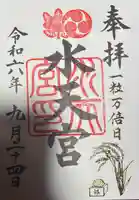 奉拝
一粒万倍日
水天宮
令和六年
九月二十四日